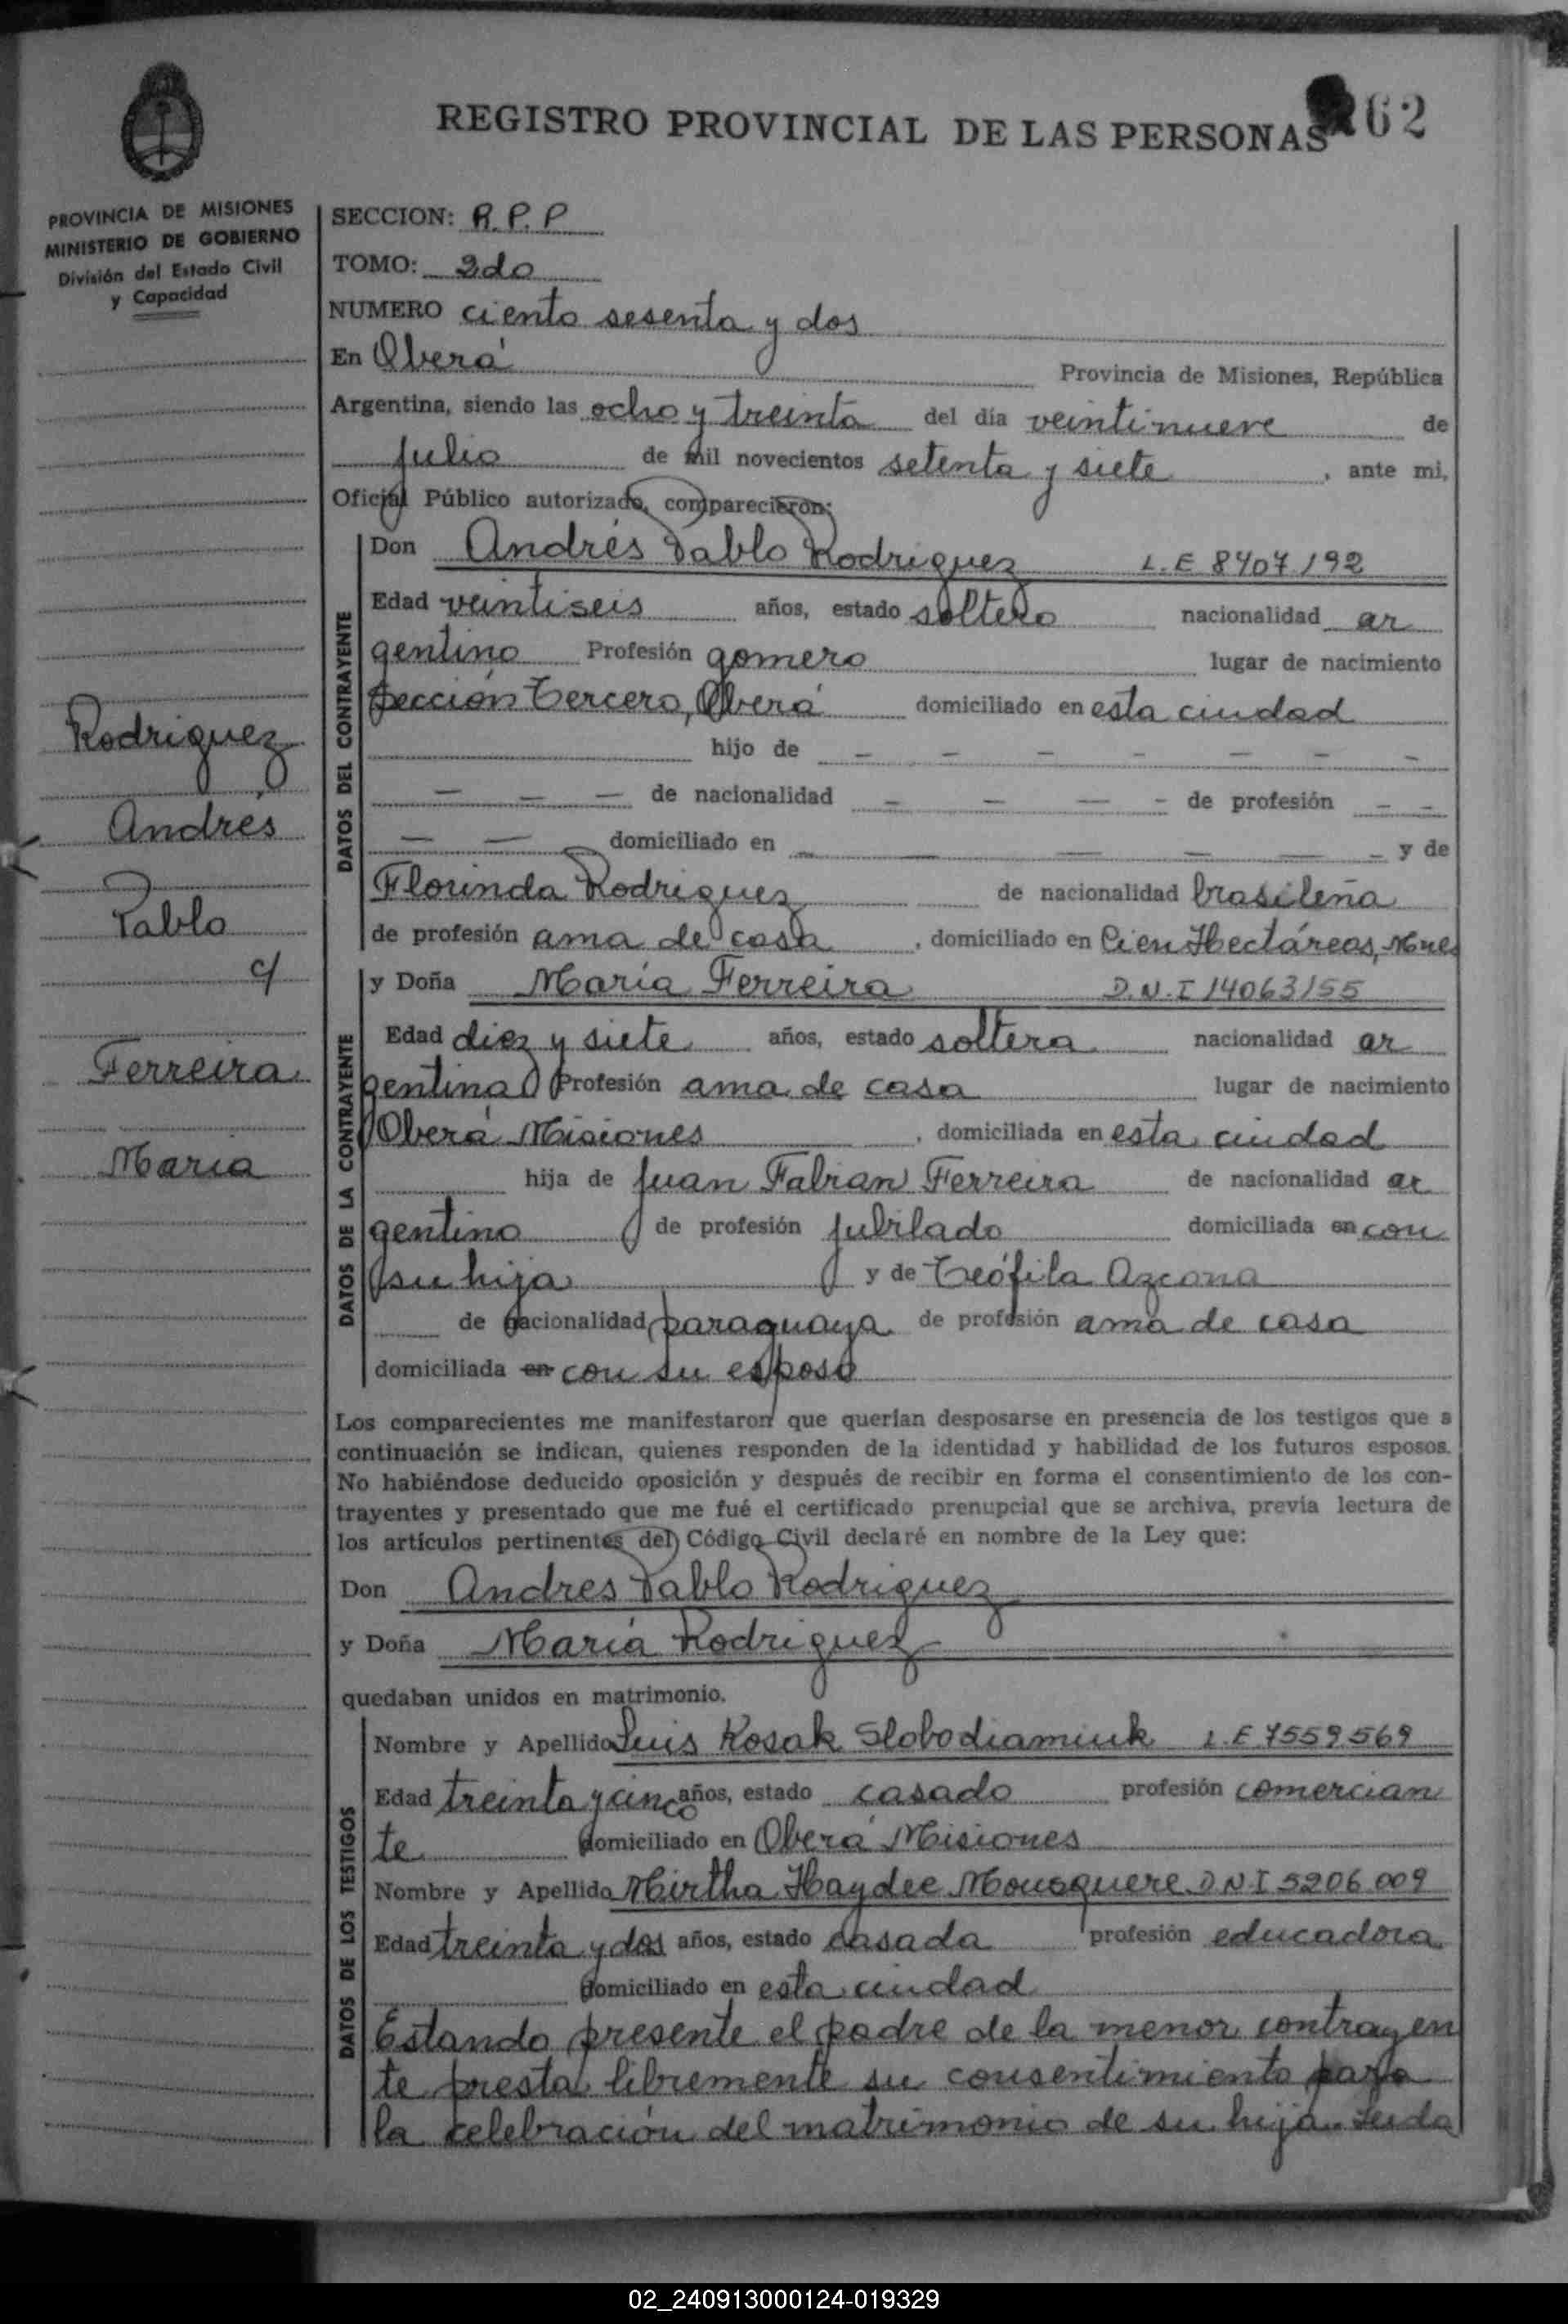 REGISTRO PROVINCIAL DE LAS PERSONAS 162
PROVINCIA DE MISIONES
MINISTERIO DE GOBIERNO
División del Estado Civil
y Capacidad
Rodriguez
Andrés
Pablo
c/
Ferreira
Maria
SECCION: R.P.P
TOMO: 2do
NUMERO ciento sesenta y dos
En Oberá Provincia de Misiones, República
Argentina, siendo las ocho y treinta del día veintinueve de
julio de mil novecientos setenta y siete, ante mi,
Oficial Público autorizado, comparecieron:
DATOS DEL CONTRAYENTE
Don Andrés Pablo Rodriguez L.E 8407192
Edad veintiseis años, estado soltero nacionalidad ar
gentino Profesión gomero lugar de nacimiento
Sección Tercera, Oberá domiciliado en esta ciudad
hijo de - - - - - - -
- - - de nacionalidad - - - - de profesión - -
- - domiciliado en - - - - - - y de
Florinda Rodriguez de nacionalidad brasileña
de profesión ama de casa, domiciliado en Cien Hectáreas, Mnes
DATOS DE LA CONTRAYENTE
y Doña María Ferreira D.N.I 14063155
Edad diez y siete años, estado soltera nacionalidad ar
gentina Profesión ama de casa lugar de nacimiento
Oberá Misiones, domiciliada en esta ciudad
hija de Juan Fabian Ferreira de nacionalidad ar
gentino de profesión jubilado domiciliada en con
su hija y de Teófila Azcona
de nacionalidad paraguaya de profesión ama de casa
domiciliada en con su esposo
Los comparecientes me manifestaron que querían desposarse en presencia de los testigos que a
continuación se indican, quienes responden de la identidad y habilidad de los futuros esposos.
No habiéndose deducido oposición y después de recibir en forma el consentimiento de los con-
trayentes y presentado que me fué el certificado prenupcial que se archiva, previa lectura de
los artículos pertinentes del Código Civil declaré en nombre de la Ley que:
Don Andres Pablo Rodriguez
y Doña María Rodriguez
quedaban unidos en matrimonio.
DATOS DE LOS TESTIGOS
Nombre y Apellido Luis Kosak Slobodiamiuk L.E 7559569
Edad treinta y cinco años, estado casado profesión comercian
te domiciliado en Oberá Misiones
Nombre y Apellido Mirtha Haydee Mousquere D.N.I 5206.009
Edad treinta y dos años, estado casada profesión educadora
domiciliado en esta ciudad
Estando presente el padre de la menor contrayen
te presta libremente su consentimiento para
la celebración del matrimonio de su hija. Leida
02_240913000124-019329